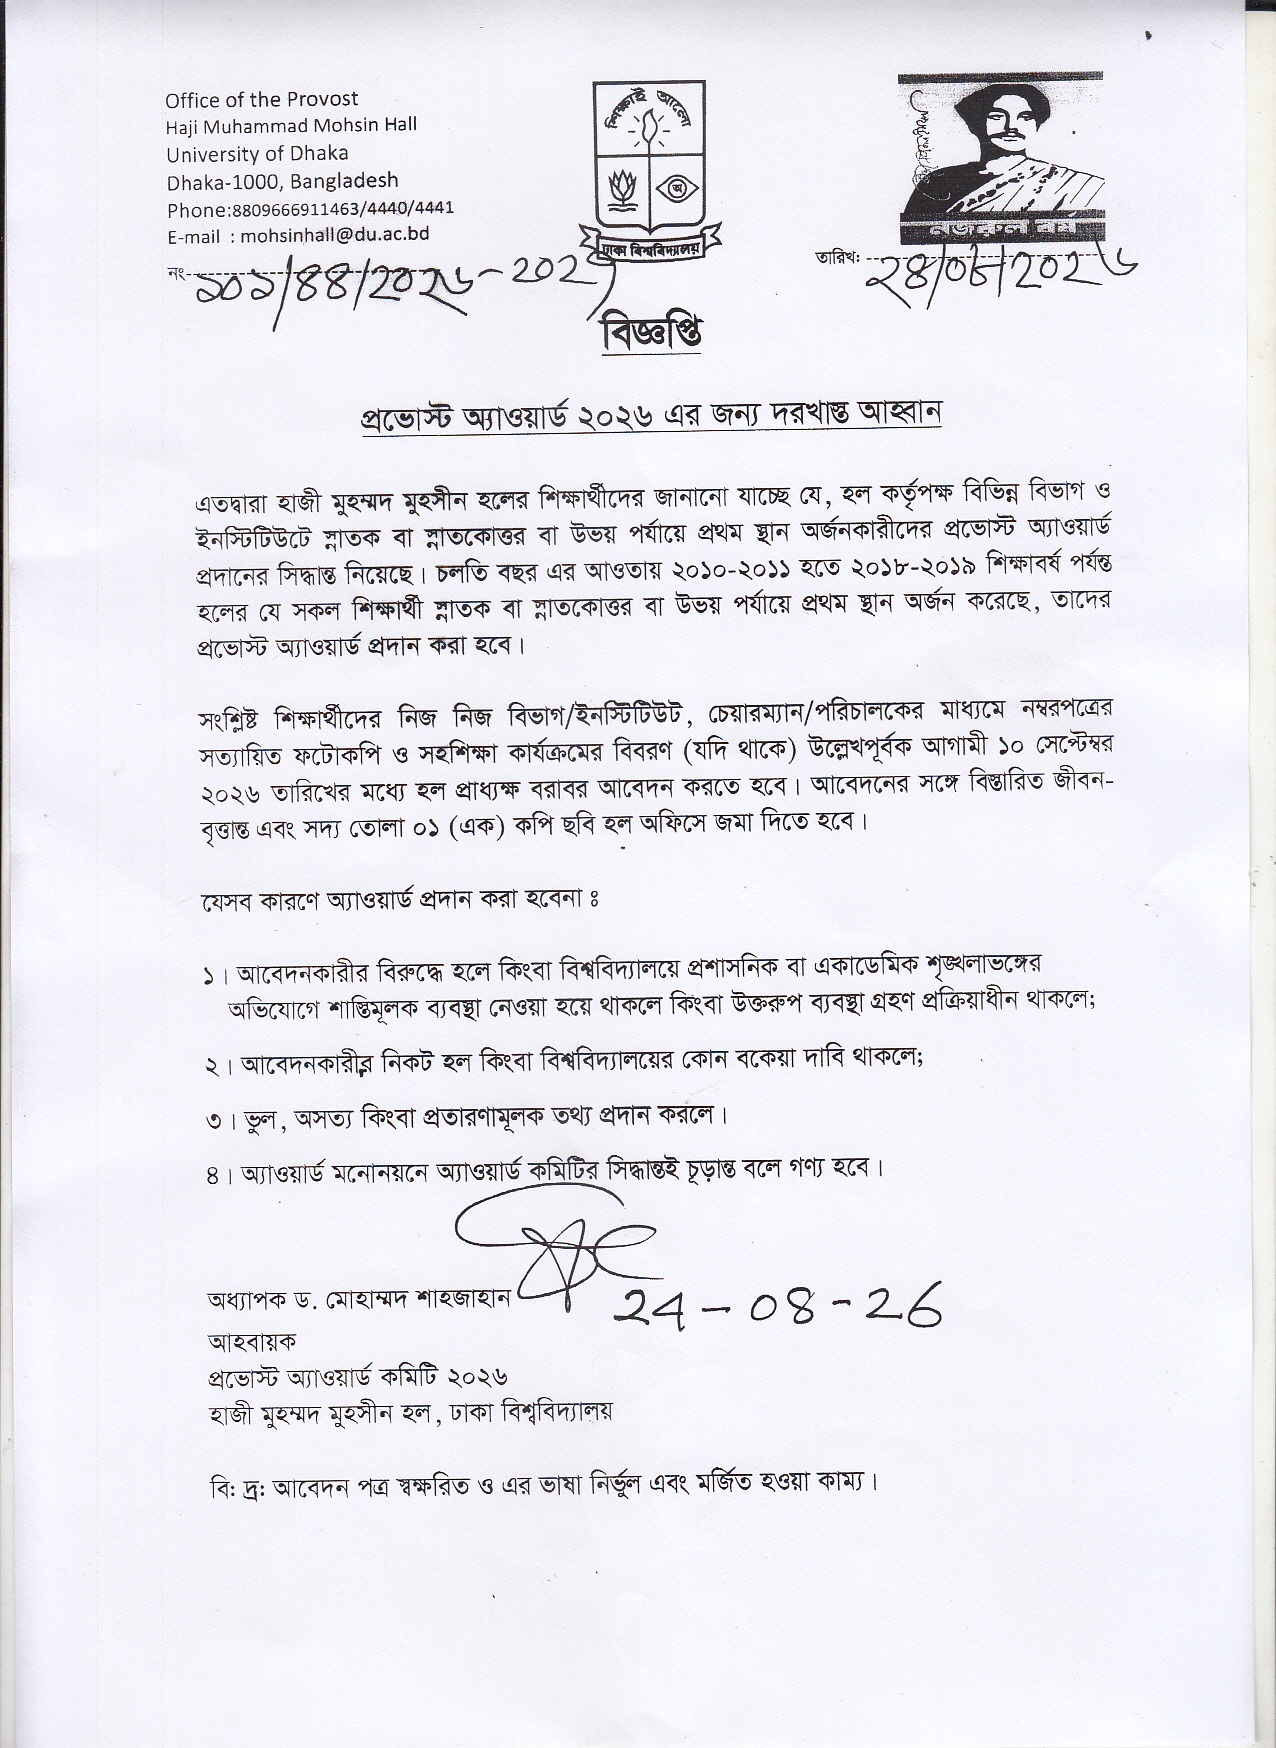 Office of the Provost
Haji Muhammad Mohsin Hall
University of Dhaka
Dhaka-1000, Bangladesh
Phone:8809666911463/4440/4441
E-mail : mohsinhall@du.ac.bd
শিক্ষাই আলো
অ
ঢাকা বিশ্ববিদ্যালয়
নজরুল বর্ষ
নং- ১০১/৪৪/২০২৬-২০২৭
তারিখ: ২৪/০৮/২০২৬
বিজ্ঞপ্তি
প্রভোস্ট অ্যাওয়ার্ড ২০২৬ এর জন্য দরখাস্ত আহ্বান
এতদ্বারা হাজী মুহম্মদ মুহসীন হলের শিক্ষার্থীদের জানানো যাচ্ছে যে, হল কর্তৃপক্ষ বিভিন্ন বিভাগ ও
ইনস্টিটিউটে স্নাতক বা স্নাতকোত্তর বা উভয় পর্যায়ে প্রথম স্থান অর্জনকারীদের প্রভোস্ট অ্যাওয়ার্ড
প্রদানের সিদ্ধান্ত নিয়েছে। চলতি বছর এর আওতায় ২০১০-২০১১ হতে ২০১৮-২০১৯ শিক্ষাবর্ষ পর্যন্ত
হলের যে সকল শিক্ষার্থী স্নাতক বা স্নাতকোত্তর বা উভয় পর্যায়ে প্রথম স্থান অর্জন করেছে, তাদের
প্রভোস্ট অ্যাওয়ার্ড প্রদান করা হবে।
সংশ্লিষ্ট শিক্ষার্থীদের নিজ নিজ বিভাগ/ইনস্টিটিউট, চেয়ারম্যান/পরিচালকের মাধ্যমে নম্বরপত্রের
সত্যায়িত ফটোকপি ও সহশিক্ষা কার্যক্রমের বিবরণ (যদি থাকে) উল্লেখপূর্বক আগামী ১০ সেপ্টেম্বর
২০২৬ তারিখের মধ্যে হল প্রাধ্যক্ষ বরাবর আবেদন করতে হবে। আবেদনের সঙ্গে বিস্তারিত জীবন-
বৃত্তান্ত এবং সদ্য তোলা ০১ (এক) কপি ছবি হল অফিসে জমা দিতে হবে।
যেসব কারণে অ্যাওয়ার্ড প্রদান করা হবেনা ঃ
১। আবেদনকারীর বিরুদ্ধে হলে কিংবা বিশ্ববিদ্যালয়ে প্রশাসনিক বা একাডেমিক শৃঙ্খলাভঙ্গের
অভিযোগে শাস্তিমূলক ব্যবস্থা নেওয়া হয়ে থাকলে কিংবা উক্তরুপ ব্যবস্থা গ্রহণ প্রক্রিয়াধীন থাকলে;
২। আবেদনকারীর নিকট হল কিংবা বিশ্ববিদ্যালয়ের কোন বকেয়া দাবি থাকলে;
৩। ভুল, অসত্য কিংবা প্রতারণামূলক তথ্য প্রদান করলে।
৪। অ্যাওয়ার্ড মনোনয়নে অ্যাওয়ার্ড কমিটির সিদ্ধান্তই চূড়ান্ত বলে গণ্য হবে।
অধ্যাপক ড. মোহাম্মদ শাহজাহান 24-08-26
আহবায়ক
প্রভোস্ট অ্যাওয়ার্ড কমিটি ২০২৬
হাজী মুহম্মদ মুহসীন হল, ঢাকা বিশ্ববিদ্যালয়
বি: দ্র: আবেদন পত্র স্বক্ষরিত ও এর ভাষা নির্ভুল এবং মর্জিত হওয়া কাম্য।